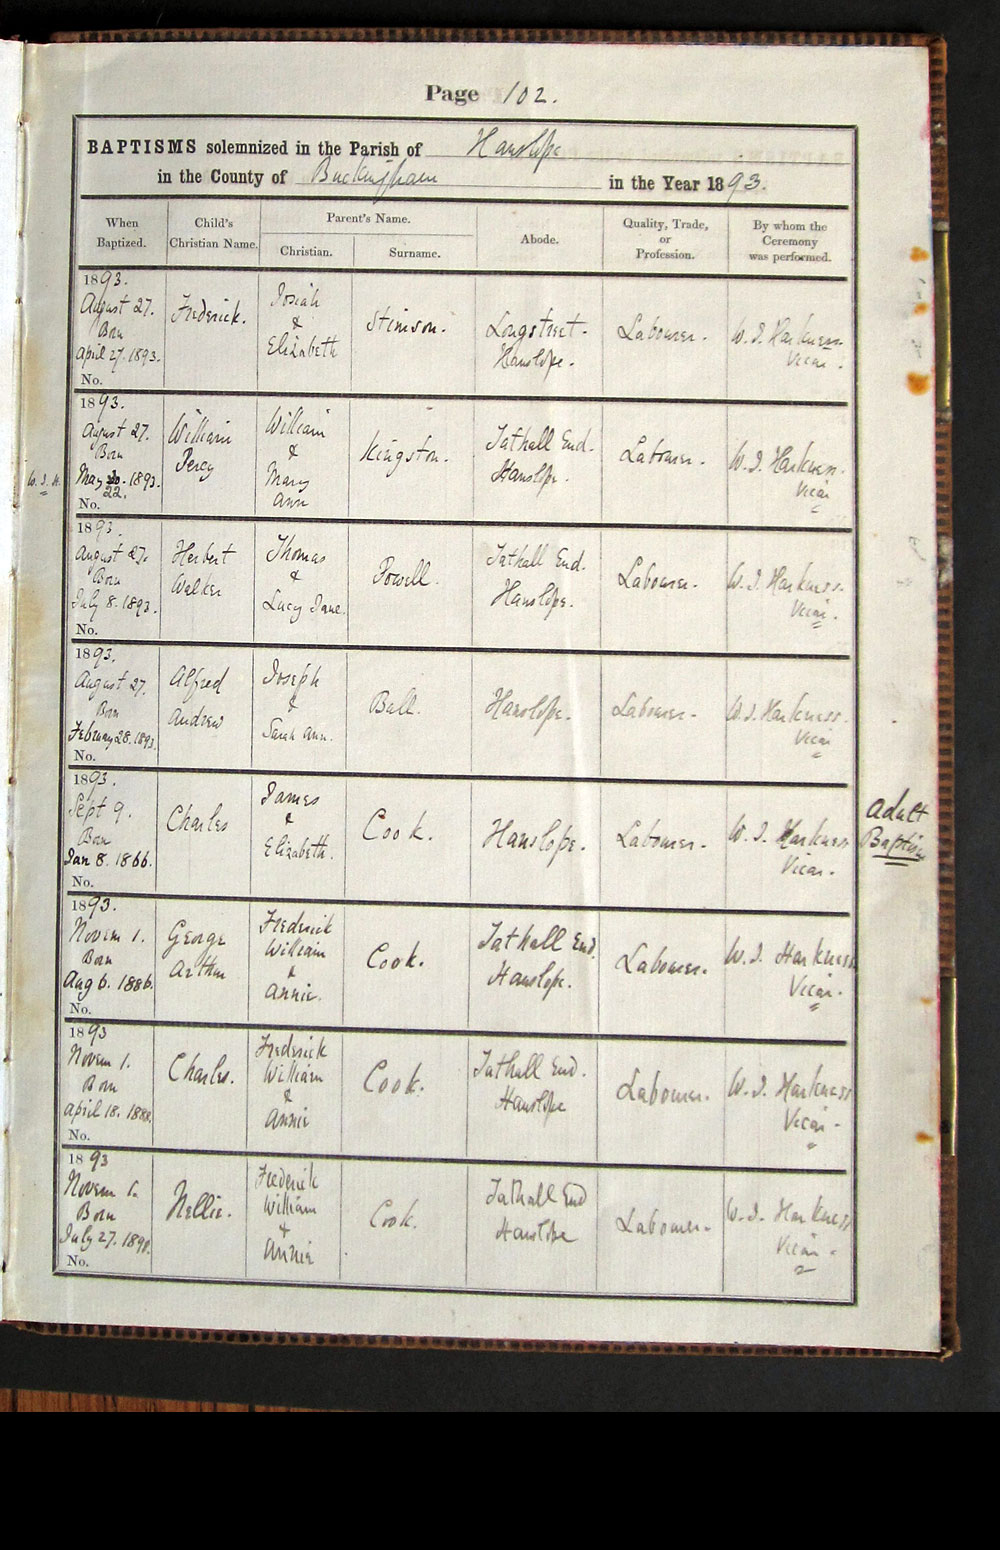 Page 102.
BAPTISMS solemnized in the Parish of Hanslope
in the County of Buckingham in the Year 1893.
When Baptized. Child's Christian Name. Parent's Name. Christian. Surname. Abode. Quality, Trade, or Profession. By whom the Ceremony was performed.
1893.
August 27. Frederick. Josiah Stimson. Longstreet. Labourer. W. J. Harkness.
Born & Hanslope. Vicar.
April 27. 1893. Elizabeth
No.
1893.
August 27. William William Kingston. Tathall End. Labourer. W. J. Harkness.
Born Percy & Hanslope. Vicar
W. J. H. May 20. 1893. Mary
22. Ann
No.
1893.
August 27. Herbert Thomas Powell. Tathall End. Labourer. W. J. Harkness.
Born Walker & Hanslope. Vicar.
July 8. 1893. Lucy Jane.
No.
1893.
August 27. Alfred Joseph Ball. Hanslope. Labourer. W. J. Harkness.
Born Andrew & Vicar
February 28. 1893. Sarah Ann.
No.
1893.
Sept 9. Charles James Cook. Hanslope. Labourer. W. J. Harkness Adult
Born & Vicar. Baptism
Jan 8. 1866. Elizabeth.
No.
1893.
Novem 1. George Frederick Cook. Tathall End. Labourer. W. J. Harkness.
Born Arthur William Hanslope. Vicar.
Aug 6. 1886. &
Annie.
No.
1893
Novem 1. Charles. Frederick Cook. Tathall End. Labourer. W. J. Harkness
Born William Hanslope Vicar.
April 18. 1888. &
Annie
No.
1893
Novem 1. Nellie. Frederick Cook. Tathall End Labourer. W. J. Harkness
Born William Hanslope Vicar.
July 27. 1890. &
Annie
No.